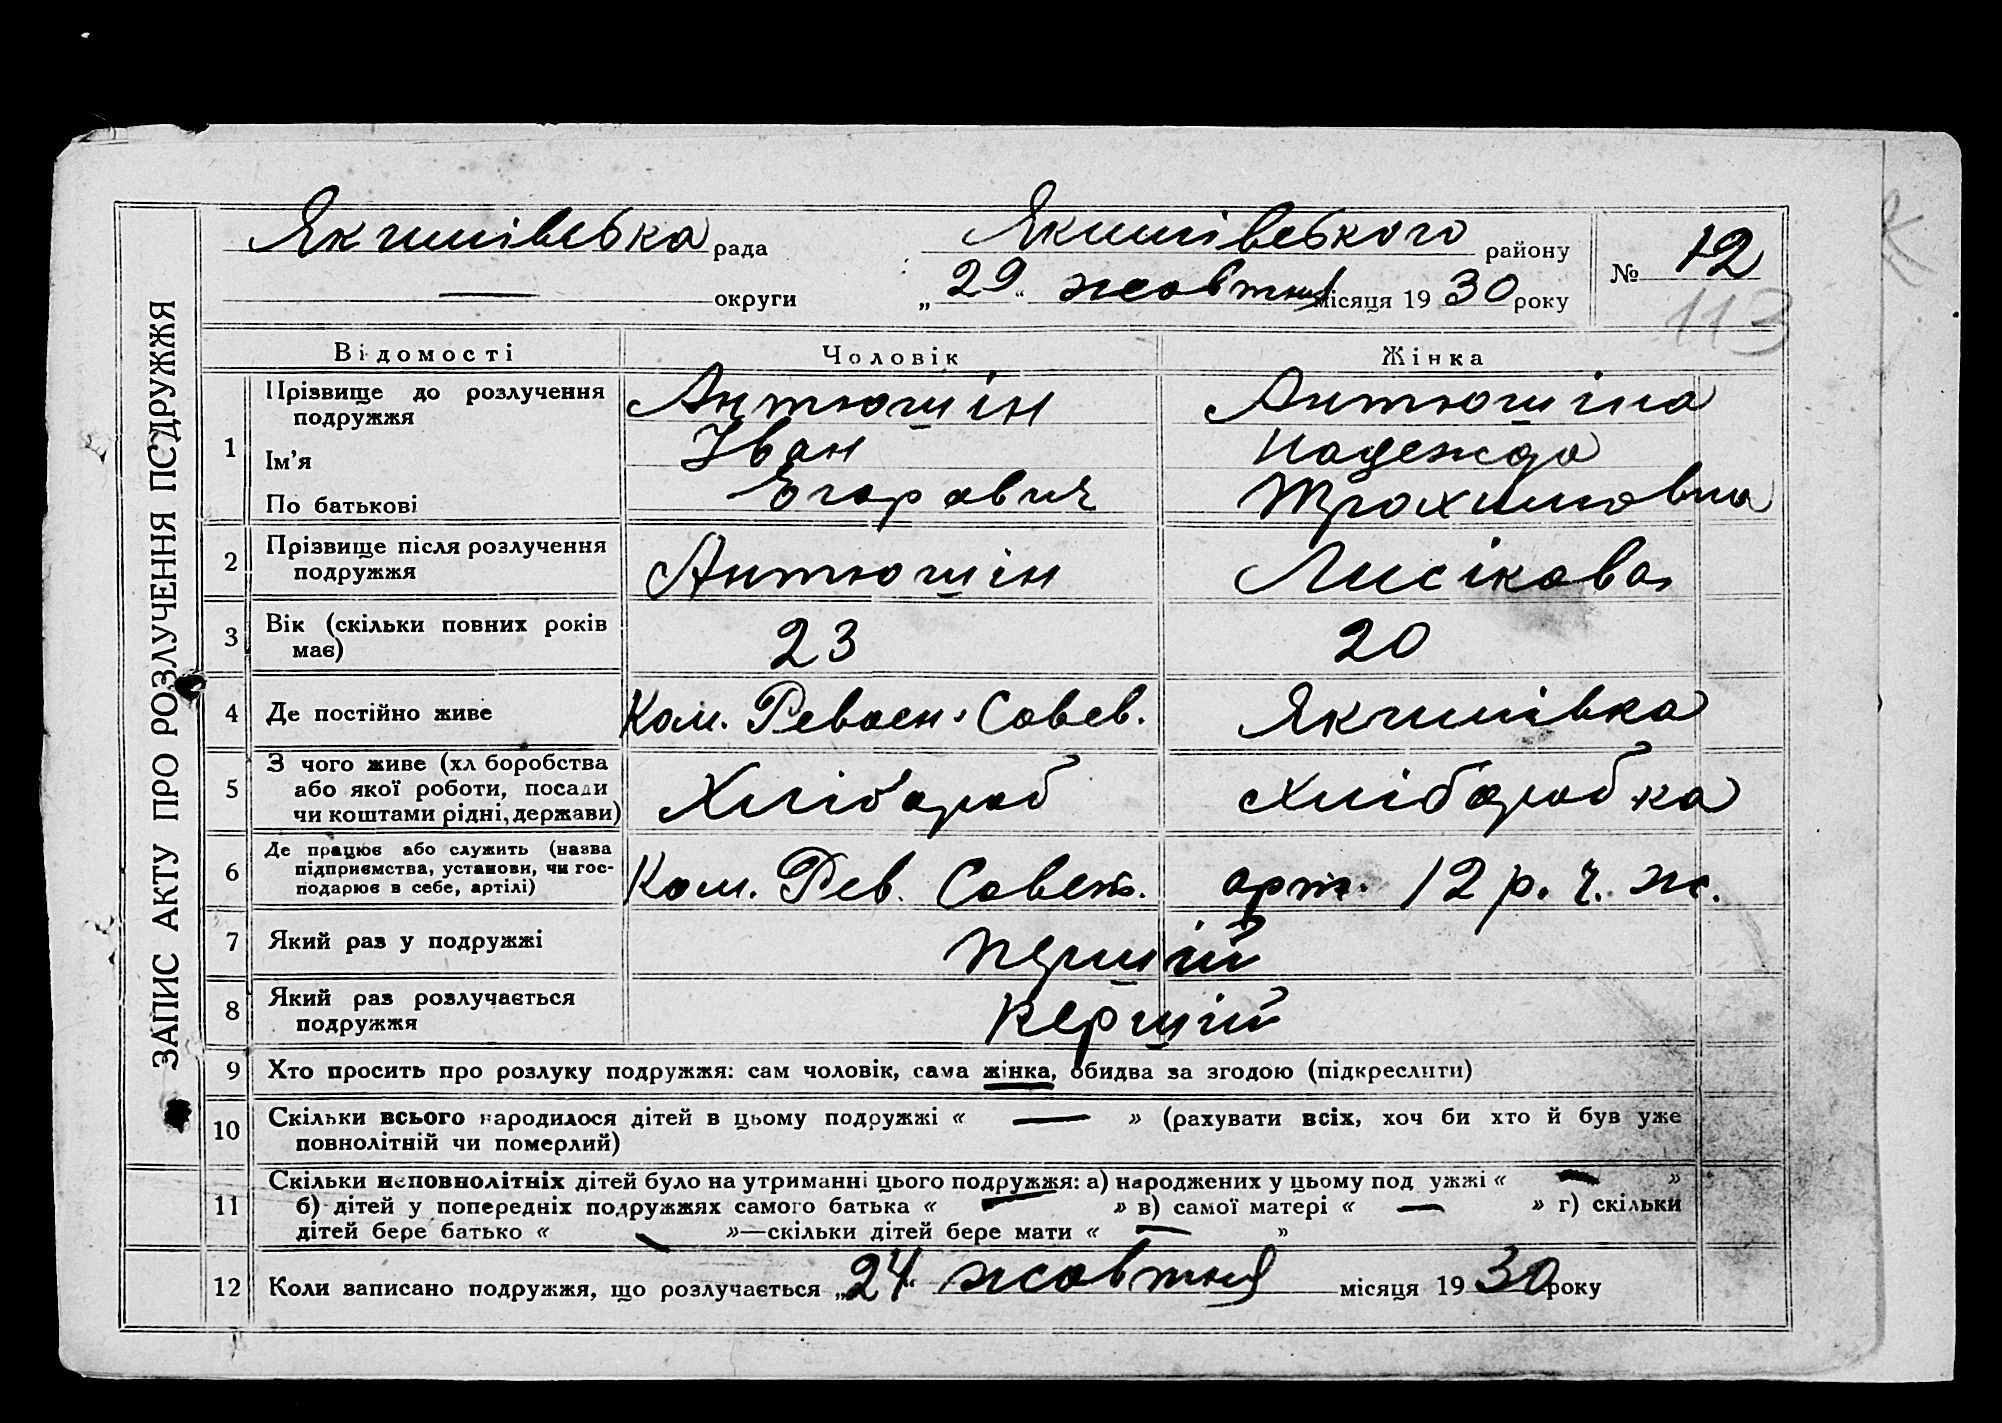 ЗАПИС АКТУ ПРО РОЗЛУЧЕННЯ ПОДРУЖЖЯ
Якимівська рада
Якимівського району
№ 12
— округи
„29“ жовтня місяця 1930 року
113
Відомості Чоловік Жінка
1 Прізвище до розлучення подружжя Антюшін Антюшіна
Ім'я Іван Надежда
По батькові Егорович Трохимовна
2 Прізвище після розлучення подружжя Антюшін Лисікова
3 Вік (скільки повних років має) 23 20
4 Де постійно живе Ком. Реввоен. Совєв. Якимівка
5 З чого живе (хліборобства або якої роботи, посади чи коштами рідні, держави) Хлібороб хліборобка
6 Де працює або служить (назва підприємства, установи, чи господарює в себе, артілі) Ком. Рев. Совет. арт. 12 р. ч. ж.
7 Який раз у подружжі першій
8 Який раз розлучається подружжя першій
9 Хто просить про розлуку подружжя: сам чоловік, сама жінка, обидва за згодою (підкреслити)
10 Скільки всього народилося дітей в цьому подружжі « — » (рахувати всіх, хоч би хто й був уже
повнолітній чи померлий)
11 Скільки неповнолітніх дітей було на утриманні цього подружжя: а) народжених у цьому подружжі « — »
б) дітей у попередніх подружжях самого батька « — » в) самої матері « — » г) скільки
дітей бере батько « — »—скільки дітей бере мати « — »
12 Коли записано подружжя, що розлучається „24“ жовтня місяця 1930 року